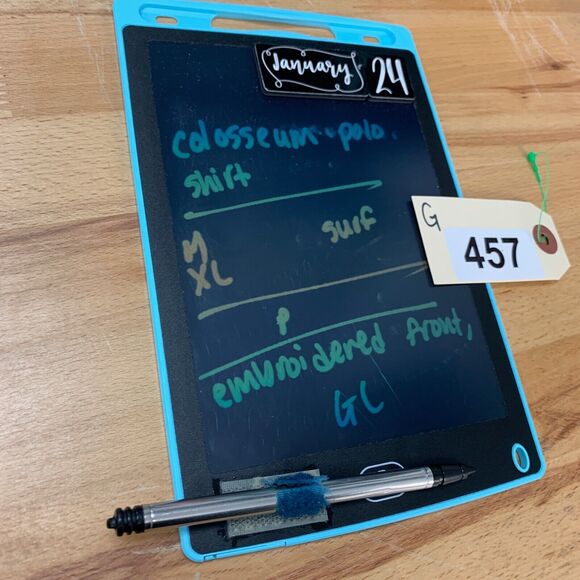 January 24
colosseum polo
shirt
M surf
XL
G
457
P
embroidered front,
GC